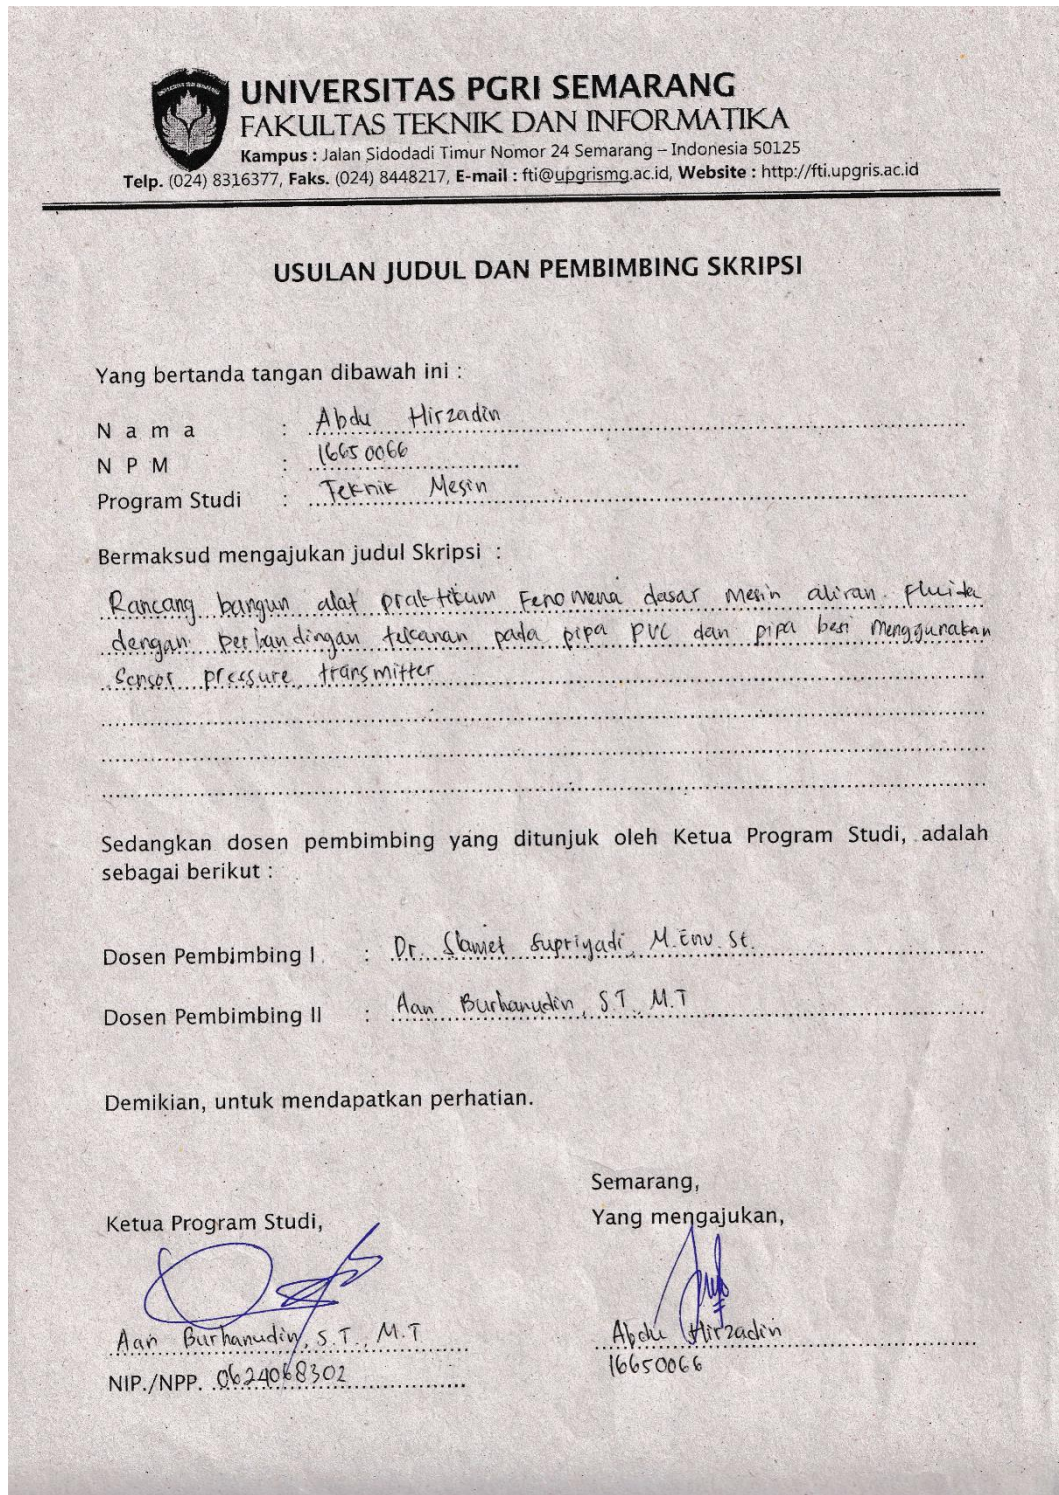 UNIVERSITAS PGRI SEMARANG
FAKULTAS TEKNIK DAN INFORMATIKA
Kampus : Jalan Sidodadi Timur Nomor 24 Semarang – Indonesia 50125
Telp. (024) 8316377, Faks. (024) 8448217, E-mail : fti@upgrismg.ac.id, Website : http://fti.upgris.ac.id
USULAN JUDUL DAN PEMBIMBING SKRIPSI
Yang bertanda tangan dibawah ini :
N a m a : Abdu Hirzadin
N P M : 16650066
Program Studi : Teknik Mesin
Bermaksud mengajukan judul Skripsi :
Rancang bangun alat praktikum Fenomena dasar Mesin aliran Fluida
dengan perbandingan tekanan pada pipa PVC dan pipa besi Menggunakan
Sensor pressure transmitter
Sedangkan dosen pembimbing yang ditunjuk oleh Ketua Program Studi, adalah
sebagai berikut :
Dosen Pembimbing I : Dr. Slamet Supriyadi, M.Env.St.
Dosen Pembimbing II : Aan Burhanudin, S.T., M.T
Demikian, untuk mendapatkan perhatian.
Semarang,
Ketua Program Studi, Yang mengajukan,
Aan Burhanudin, S.T., M.T Abdu Hirzadin
NIP./NPP. 0624068302 16650066